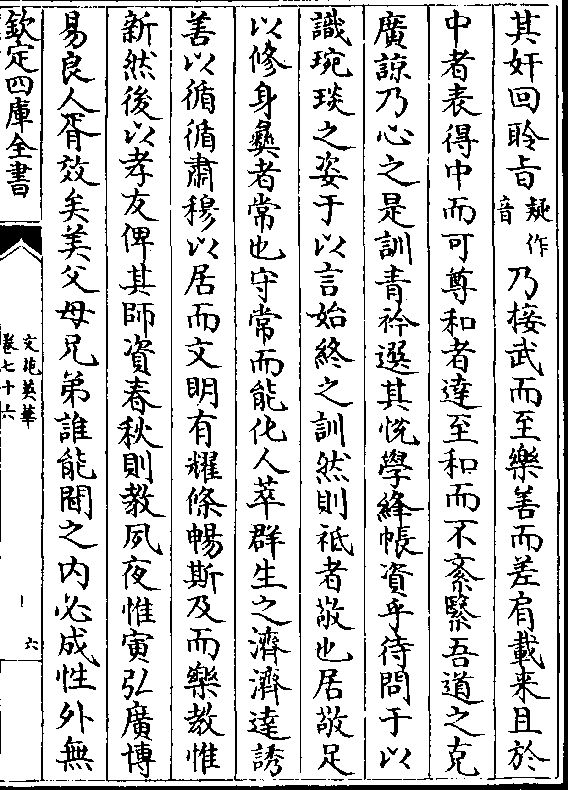 其奸回聆㫖疑作音乃接武而至樂善而差肩載来且於
中者表得中而可尊和者達至和而不紊繄吾道之克
廣諒乃心之是訓青衿選其恱學絳帳資乎待問于以
識琬琰之姿于以言始終之訓然則祗者敬也居敬足
以修身彞者常也守常而能化人萃群生之濟濟達誘
善以循循肅穆以居而文明有耀條暢斯及而樂教惟
新然後以孝友俾其師資春秋則教夙夜惟寅弘廣博
易良人胥效矣美父母兄弟誰能閒之内必成性外無
欽定四庫全書
文苑英華
卷七十六
六